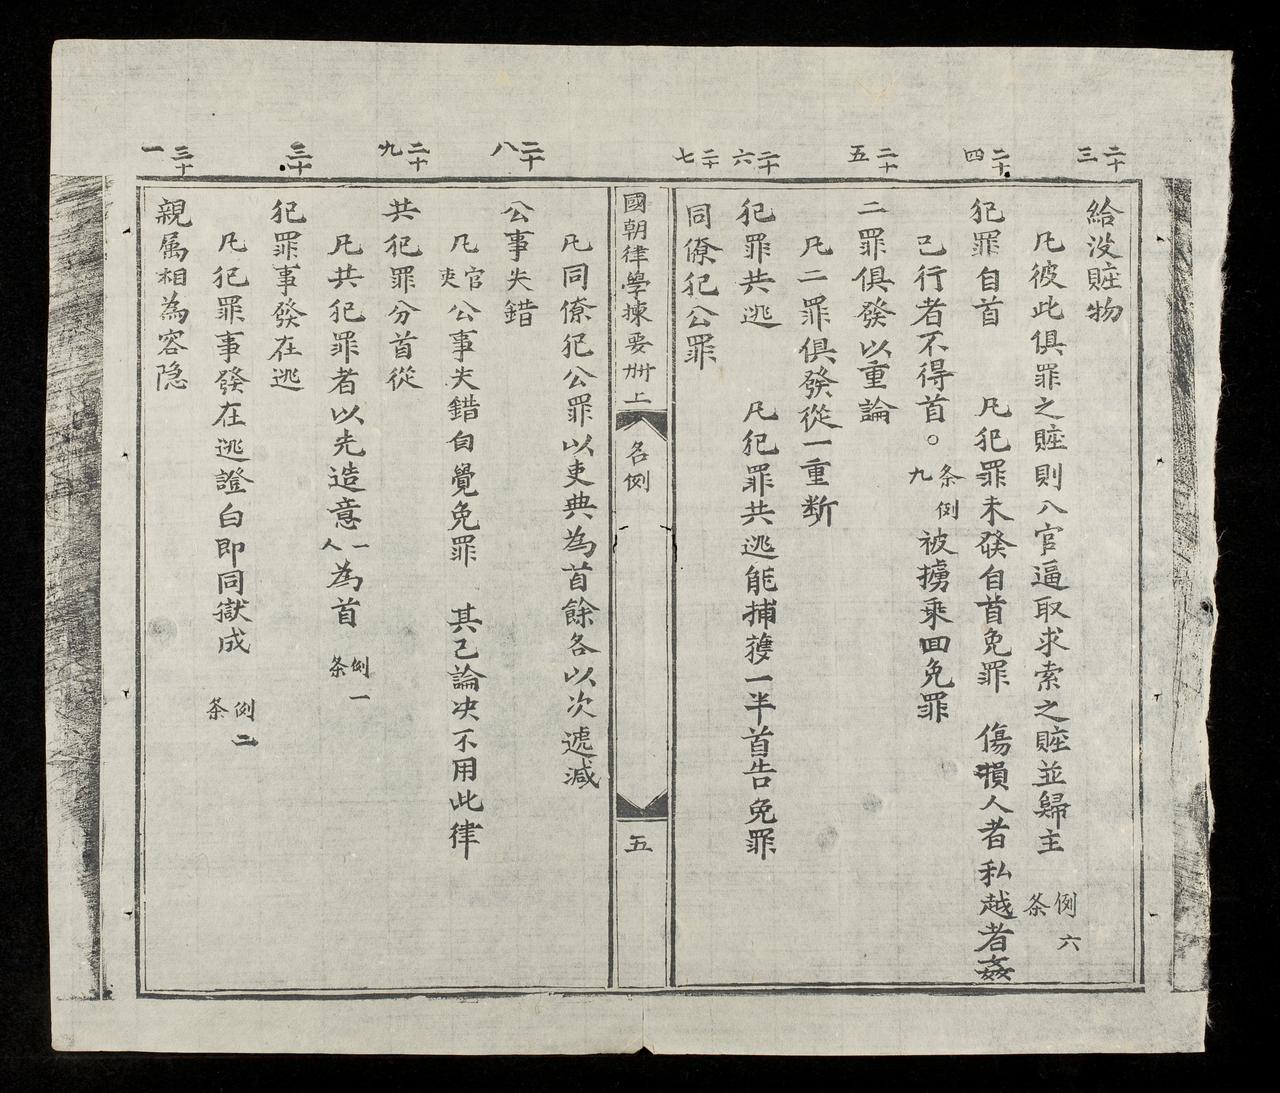 二十三
給没賍物
凡彼此俱罪之賍則入官逼取求索之賍並歸主 例六条
二十四
犯罪自首 凡犯罪未發自首免罪 傷損人者私越者姦
已行者不得首。例九条 被擄乘回免罪
二十五
二罪俱發以重論
凡二罪俱發從一重断
二十六
犯罪共逃 凡犯罪共逃能捕獲一半首告免罪
二十七
同僚犯公罪
國朝律學揀要卅上 名例 五
凡同僚犯公罪以吏典為首餘各以次遞減
二十八
公事失錯
凡官吏公事失錯自覺免罪 其已論决不用此律
二十九
共犯罪分首從
凡共犯罪者以先造意一人為首 例一条
三十
犯罪事發在逃
凡犯罪事發在逃證白即同獄成 例二条
三十一
親属相為容隐